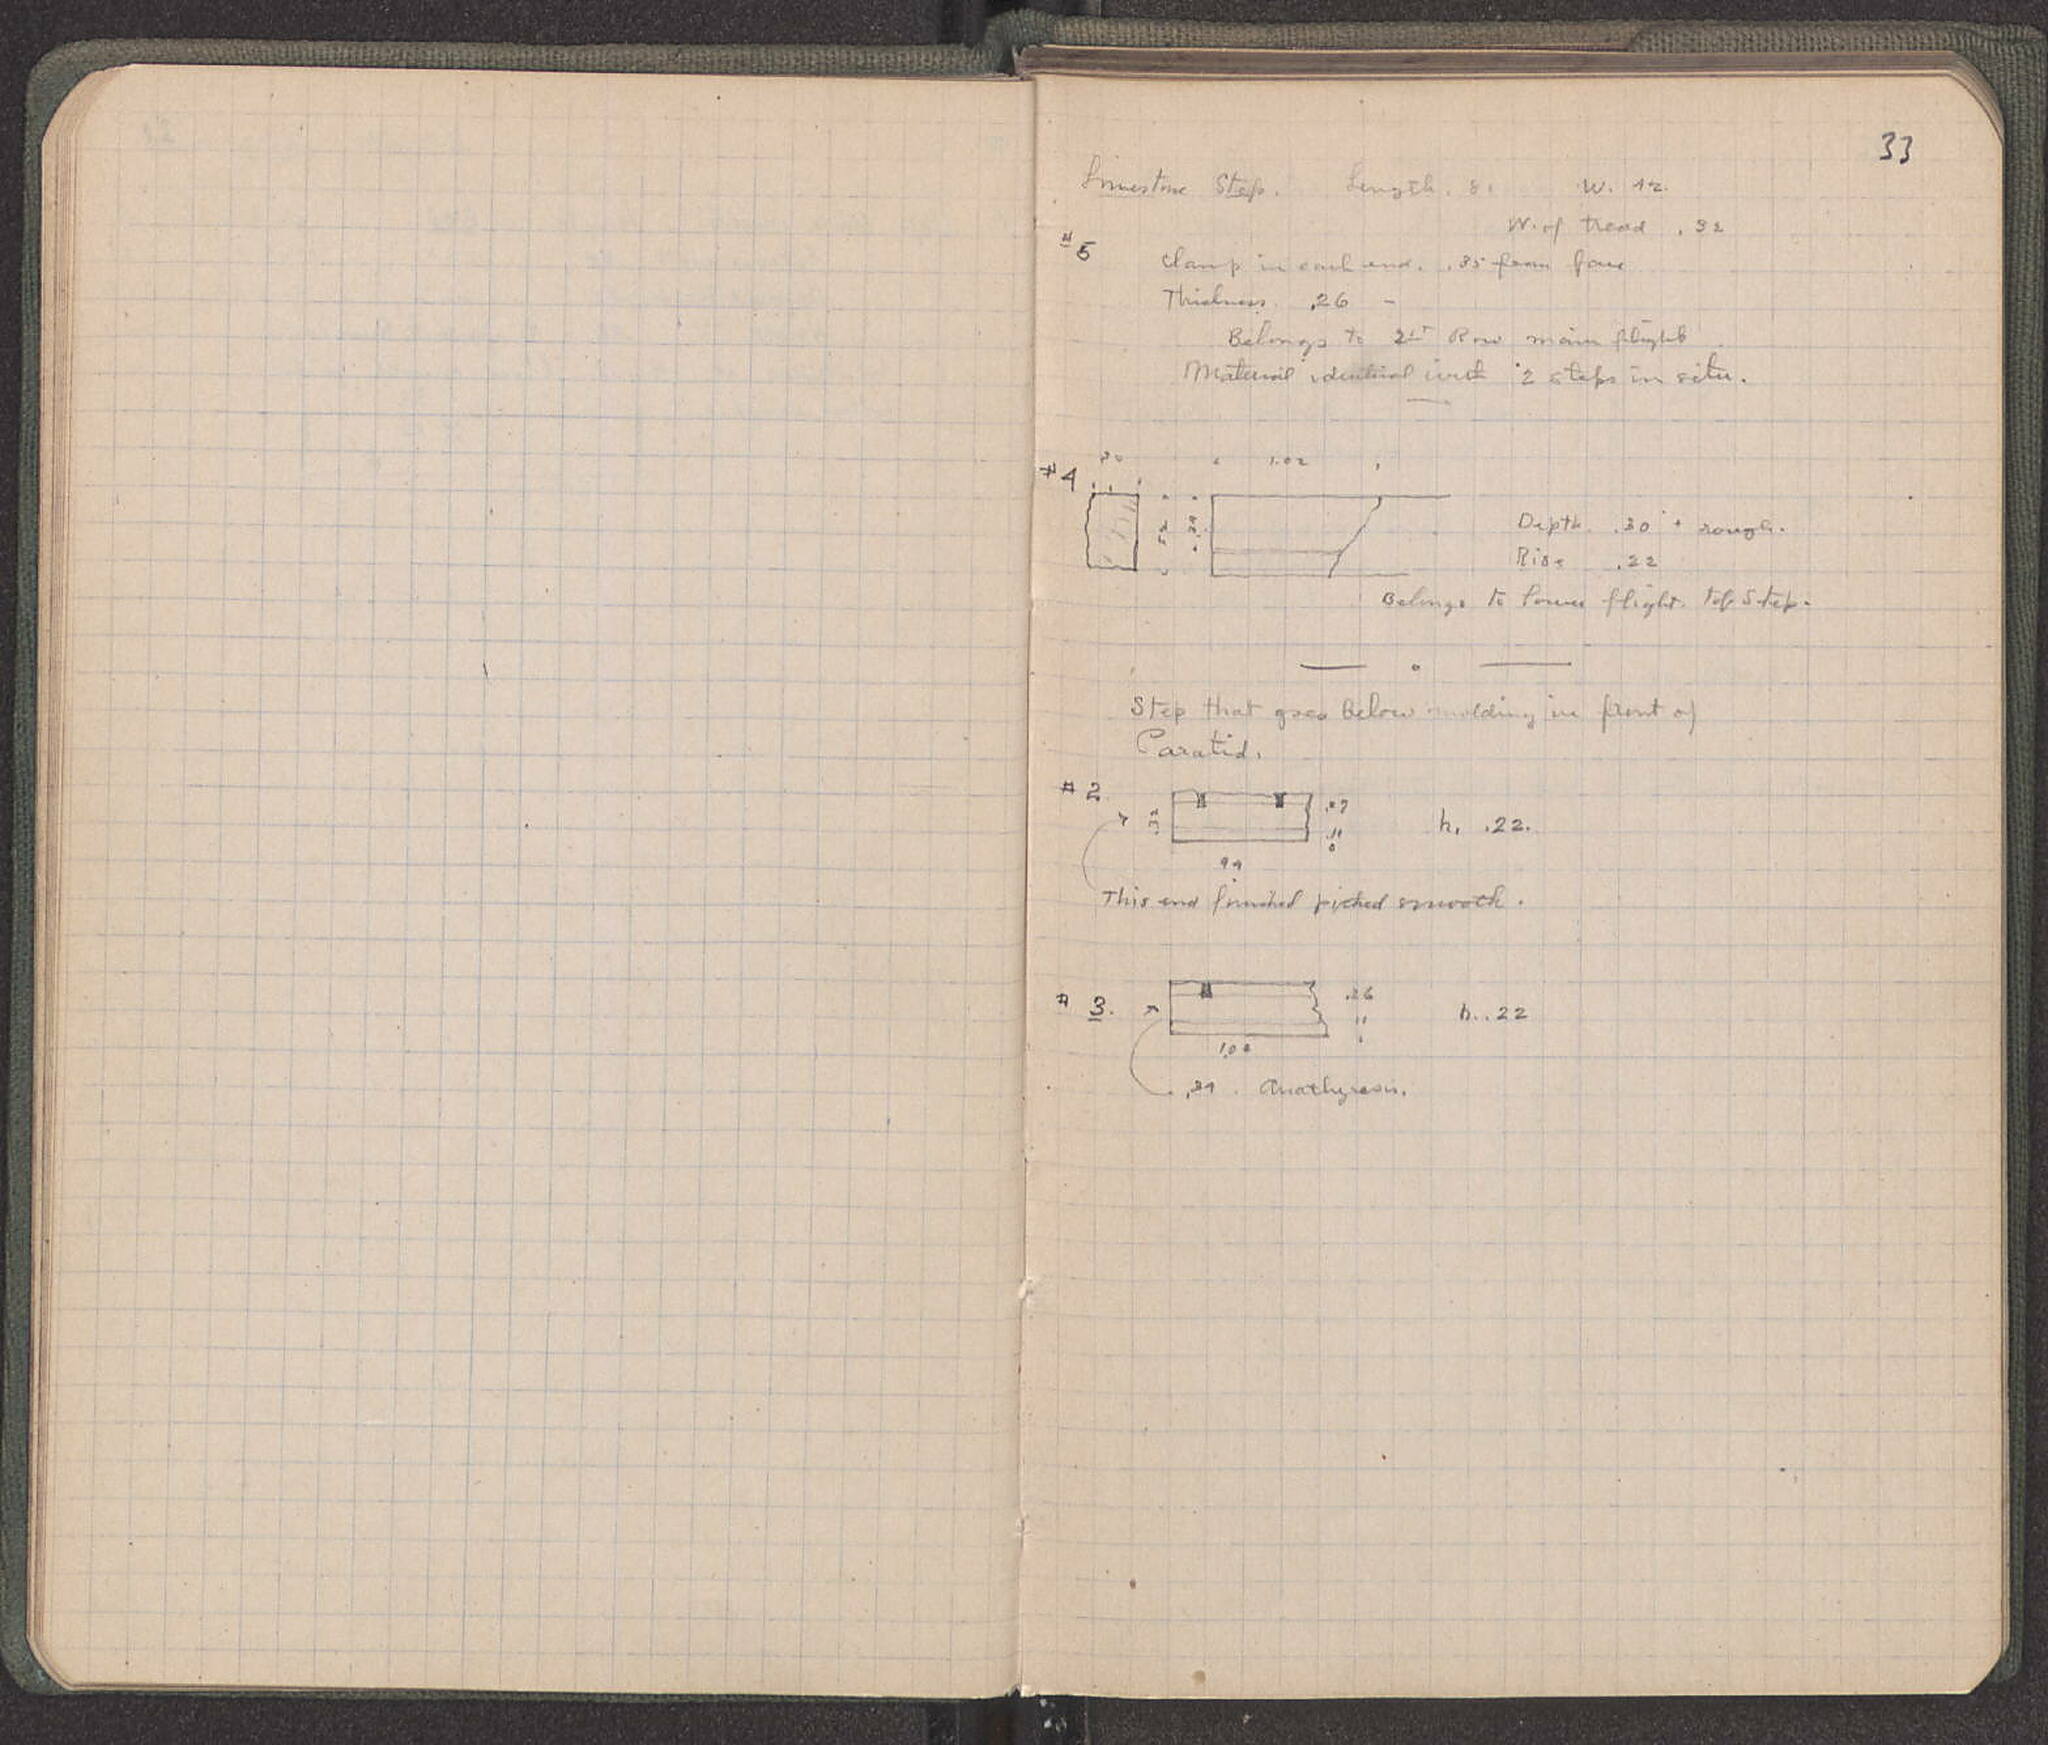 33
Limestone Step. Length . 81 W. 42.
W. of tread . 32
#5
Clamp in each end. .35 from face
Thickness. .26 -
Belongs to 2nd Row main flight
Material identical with 2 steps in situ.
1.02
#4
.52
Depth .30 + rough.
Rise .22
Belongs to lower flight. top Step.
Step that goes below molding in front of
Caratid.
#2
.32
.27
.11
0
h. .22.
94
This end finished picked smooth.
#3.
.26
11
h. .22
1.02
Anathyresis.